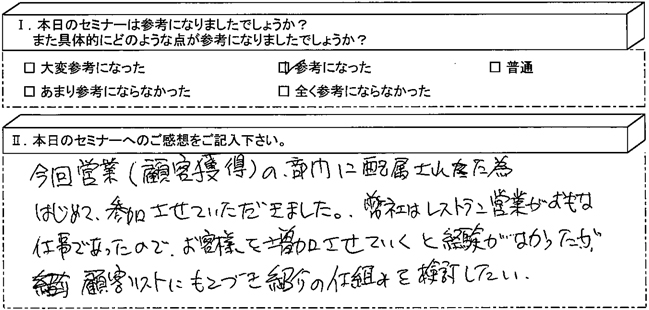 Ⅰ. 本日のセミナーは参考になりましたでしょうか?
また具体的にどのような点が参考になりましたでしょうか?
□ 大変参考になった ☑ 参考になった □ 普通
□ あまり参考にならなかった □ 全く参考にならなかった
Ⅱ. 本日のセミナーへのご感想をご記入下さい。
今回営業(顧客獲得)の部門に配属された為
はじめて、参加させていただきました。弊社はレストラン営業がおもな
仕事であったので、お客様を増加させていくと経験がなかったが、
顧客リストにもとづき紹介の仕組みを検討したい.